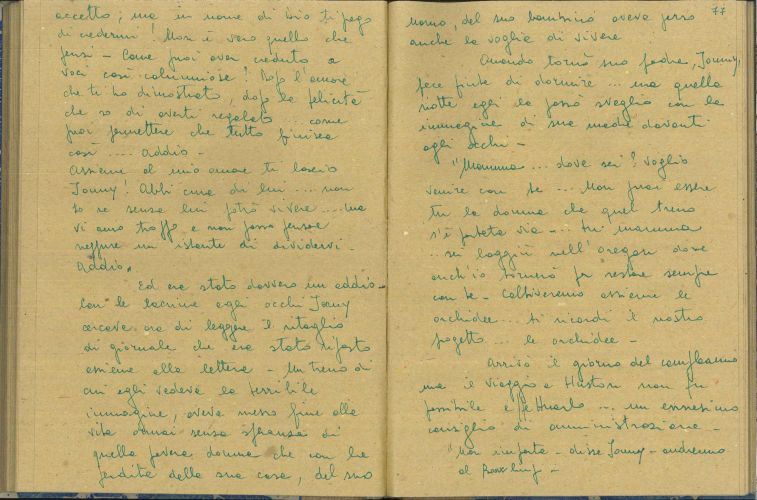 accetto; ma in nome di Dio ti prego
di credermi! Non è vero quello che
pensi - Come puoi aver creduto a
voci così calunniose! Dopo l'amore
che ti ho dimostrato, dopo la felicità
che so di averti regalato .... come
puoi permettere che tutto finisca
così .... addio -
Assieme al mio amore ti lascio
Jonny! Abbi cura di lui .... non
so se senza lui potrò vivere .... ma
vi amo troppo e non posso pensare
neppure un istante di dividervi -
Addio.
Ed era stato davvero un addio -
Con le lacrime agli occhi Jonny
cercava ora di leggere il ritaglio
di giornale che era stato riposto
assieme alla lettera - Un treno di
cui egli vedeva la terribile
immagine, aveva messo fine alla
vita ormai senza speranza di
quella povera donna che con la
perdita della sua casa, del suo
77
uomo, del suo bambino aveva perso
anche la voglia di vivere
Quando tornò suo padre, Jonny,
fece finta di dormire ... ma quella
notte egli la passò sveglio con la
immagine di sua madre davanti
agli occhi -
"Mamma ... dove sei? Voglio
venire con te ... Non puoi essere
tu la donna che quel treno
s'è portata via .... tu mamma
... sei laggiù nell'Oregon dove
anch'io tornerò per restare sempre
con te - Coltiveremo assieme le
orchidee ... ti ricordi il nostro
progetto .... le orchidee -
Arrivò il giorno del compleanno
ma il viaggio a Huston non fu
possibile effettuarlo ... un ennesimo
consiglio di amministrazione -
"Non importa - disse Jonny - andremo
al